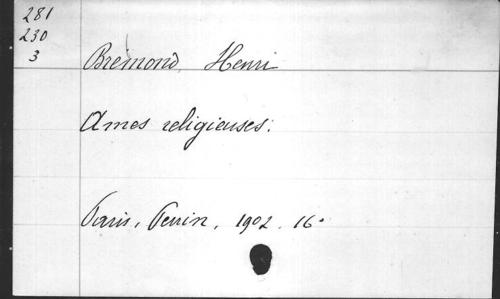 281
230
3
Brémond, Henri
Ames religieuses.
Paris, Perrin, 1902. 16°